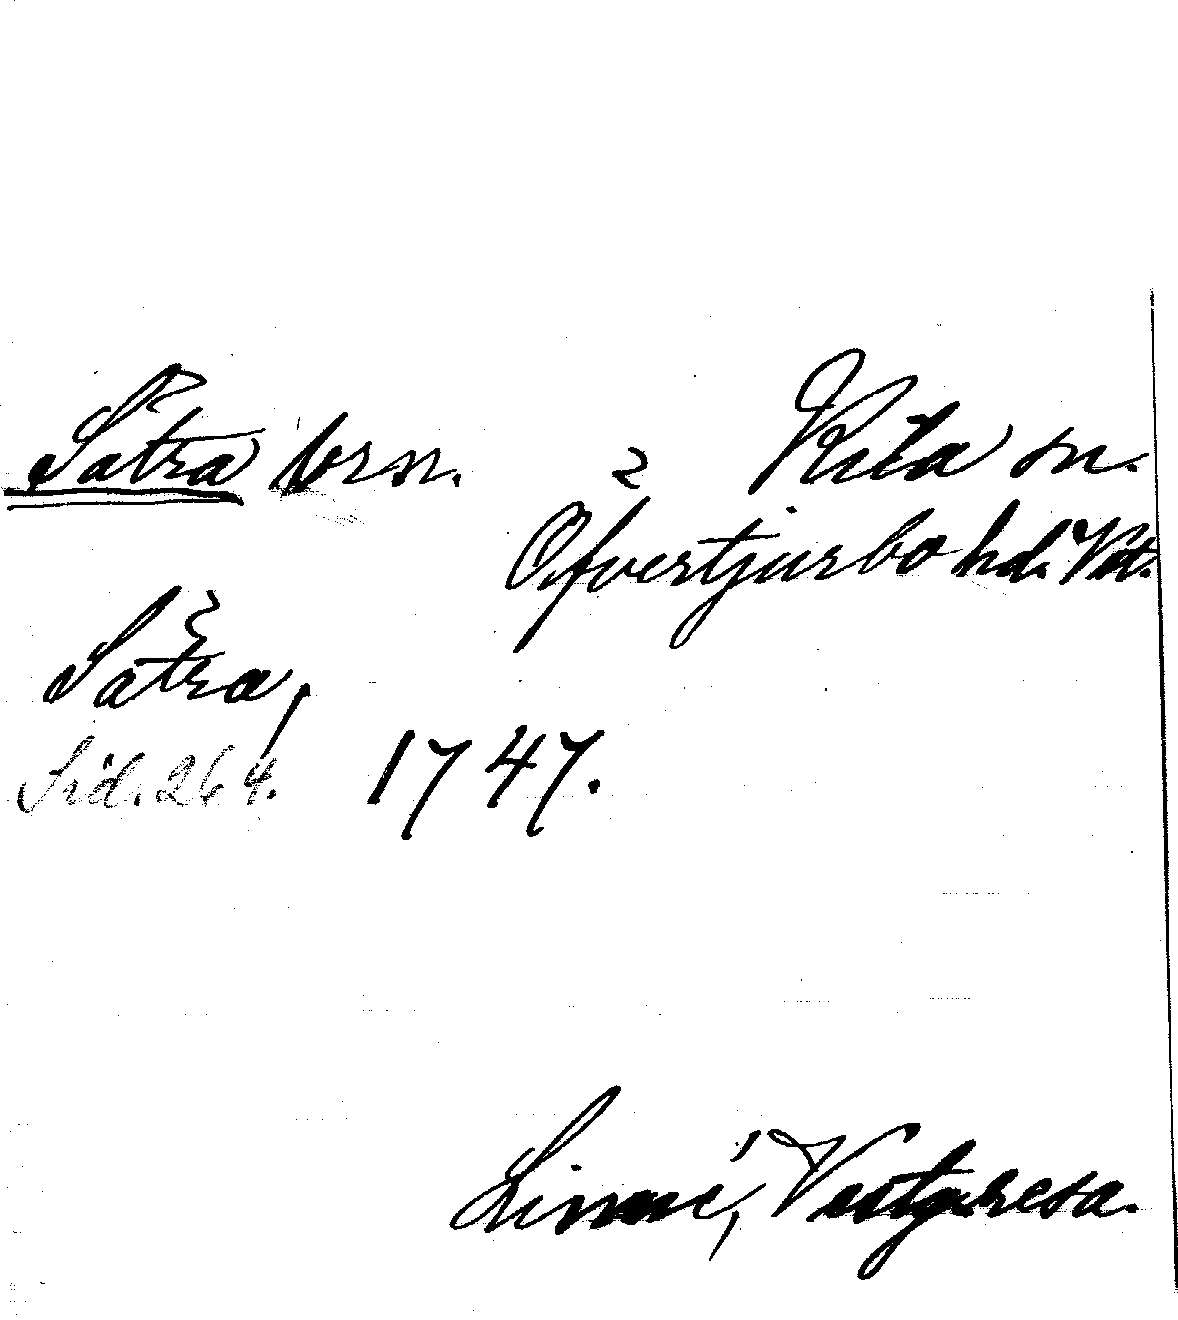 Sätra brn. Kila sn.
Öfvertjurbo hd. Vstm.
Sätra,
Sid. 264. 1747.
Linné, Vestg.resa.